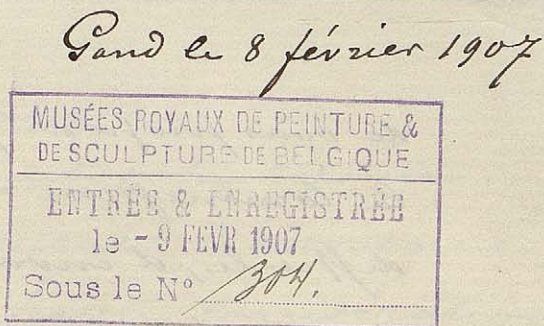 Gand le 8 février 1907
MUSÉES ROYAUX DE PEINTURE &
DE SCULPTURE DE BELGIQUE
ENTRÉE & ENREGISTRÉE
le - 9 FEVR 1907
Sous le Nº 304.